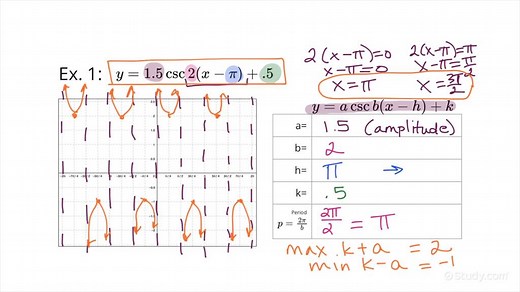 Ex. 1: y = 1.5 csc 2(x − π) + .5
2(x−π)=0
x−π=0
x=π
2(x−π)=π
x−π=π/2
x=3π/2
y = a csc b(x − h) + k
a= 1.5 (amplitude)
b= 2
h= π →
k= .5
Period
p = 2π/b 2π/2 = π
max k+a = 2
min k−a = −1
Study.com